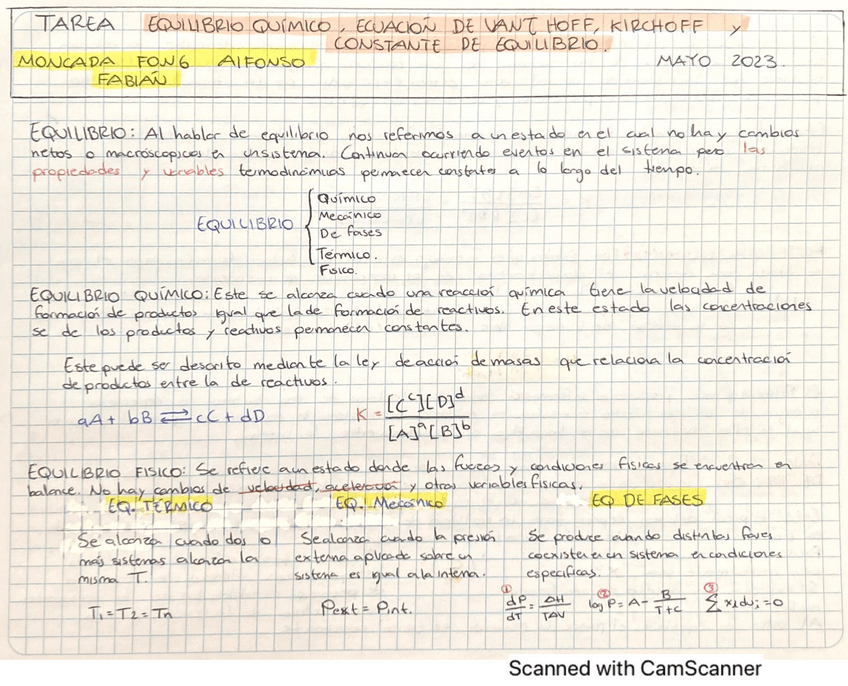 TAREA EQUILIBRIO QUÍMICO, ECUACIÓN DE VANT HOFF, KIRCHOFF y
CONSTANTE DE EQUILIBRIO.
MONCADA FONG AlFONSO MAYO 2023.
FABIÁN
EQUILIBRIO: Al hablar de equilibrio nos referimos a un estado en el cual no hay cambios
netos o macróscopicos en un sistema. Continuan ocurriendo eventos en el sistema pero las
propiedades y variables termodinámias permanecen constantes a lo largo del tiempo.
EQUILIBRIO
Químico
Mecánico
De fases
Térmico.
Físico.
EQUILIBRIO QUÍMICO: Este se alcanza cuando una reacción química tiene la velocidad de
formación de productos igual que la de formación de reactivos. En este estado las concentraciones
se de los productos y reactivos permanecen constantes.
Este puede ser descrito mediante la ley de acción de masas que relaciona la concentración
de productos entre la de reactivos.
aA + bB ⇌ cC + dD K = [C^c][D]^d / [A]^a[B]^b
EQUILIBRIO FISICO: Se refiere a un estado donde las fuerzas y condiciones fisicas se encuentran en
balance. No hay cambios de velocidad, aceleración y otras variables fisicas.
EQ. TÉRMICO EQ. Mecánico EQ DE FASES
Se alcanza cuando dos o
más sistemas alcanzan la
misma T.
T₁ = T₂ = Tn
Se alcanza cuando la presión
externa aplicada sobre un
sistema es igual a la interna.
Pext = Pint.
Se produce cuando distintas fases
coexisten en un sistema en condiciones
especificas.
① dP/dT = ΔH/TΔV ② log P = A - B/T+C ③ ∑ xi dμi = 0
Scanned with CamScanner